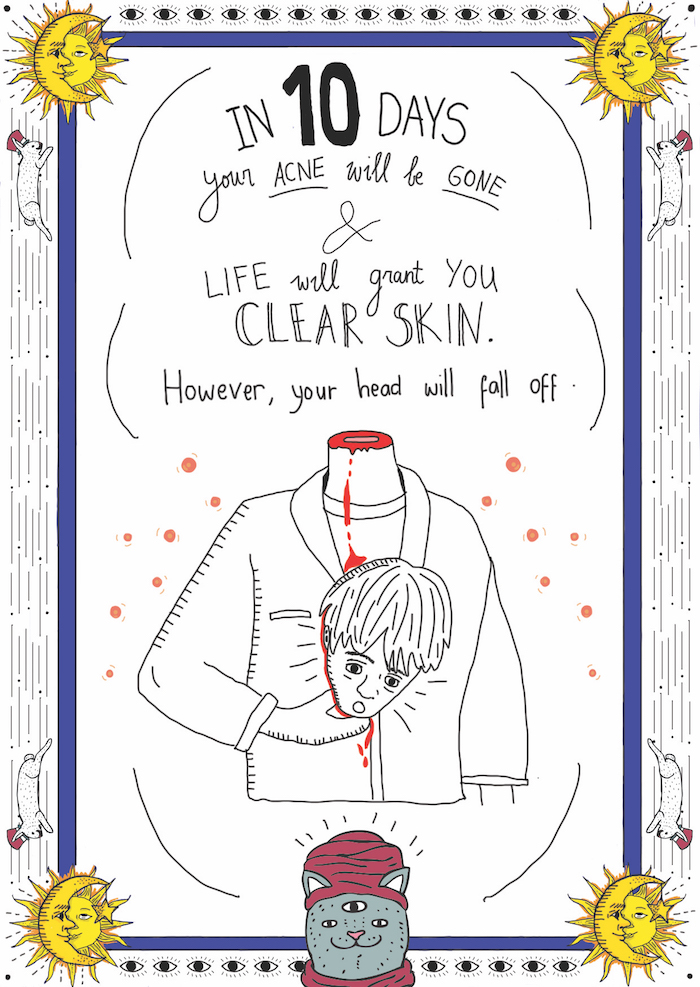 IN 10 DAYS
your ACNE will be GONE
&
LIFE will grant YOU
CLEAR SKIN.
However, your head will fall off.